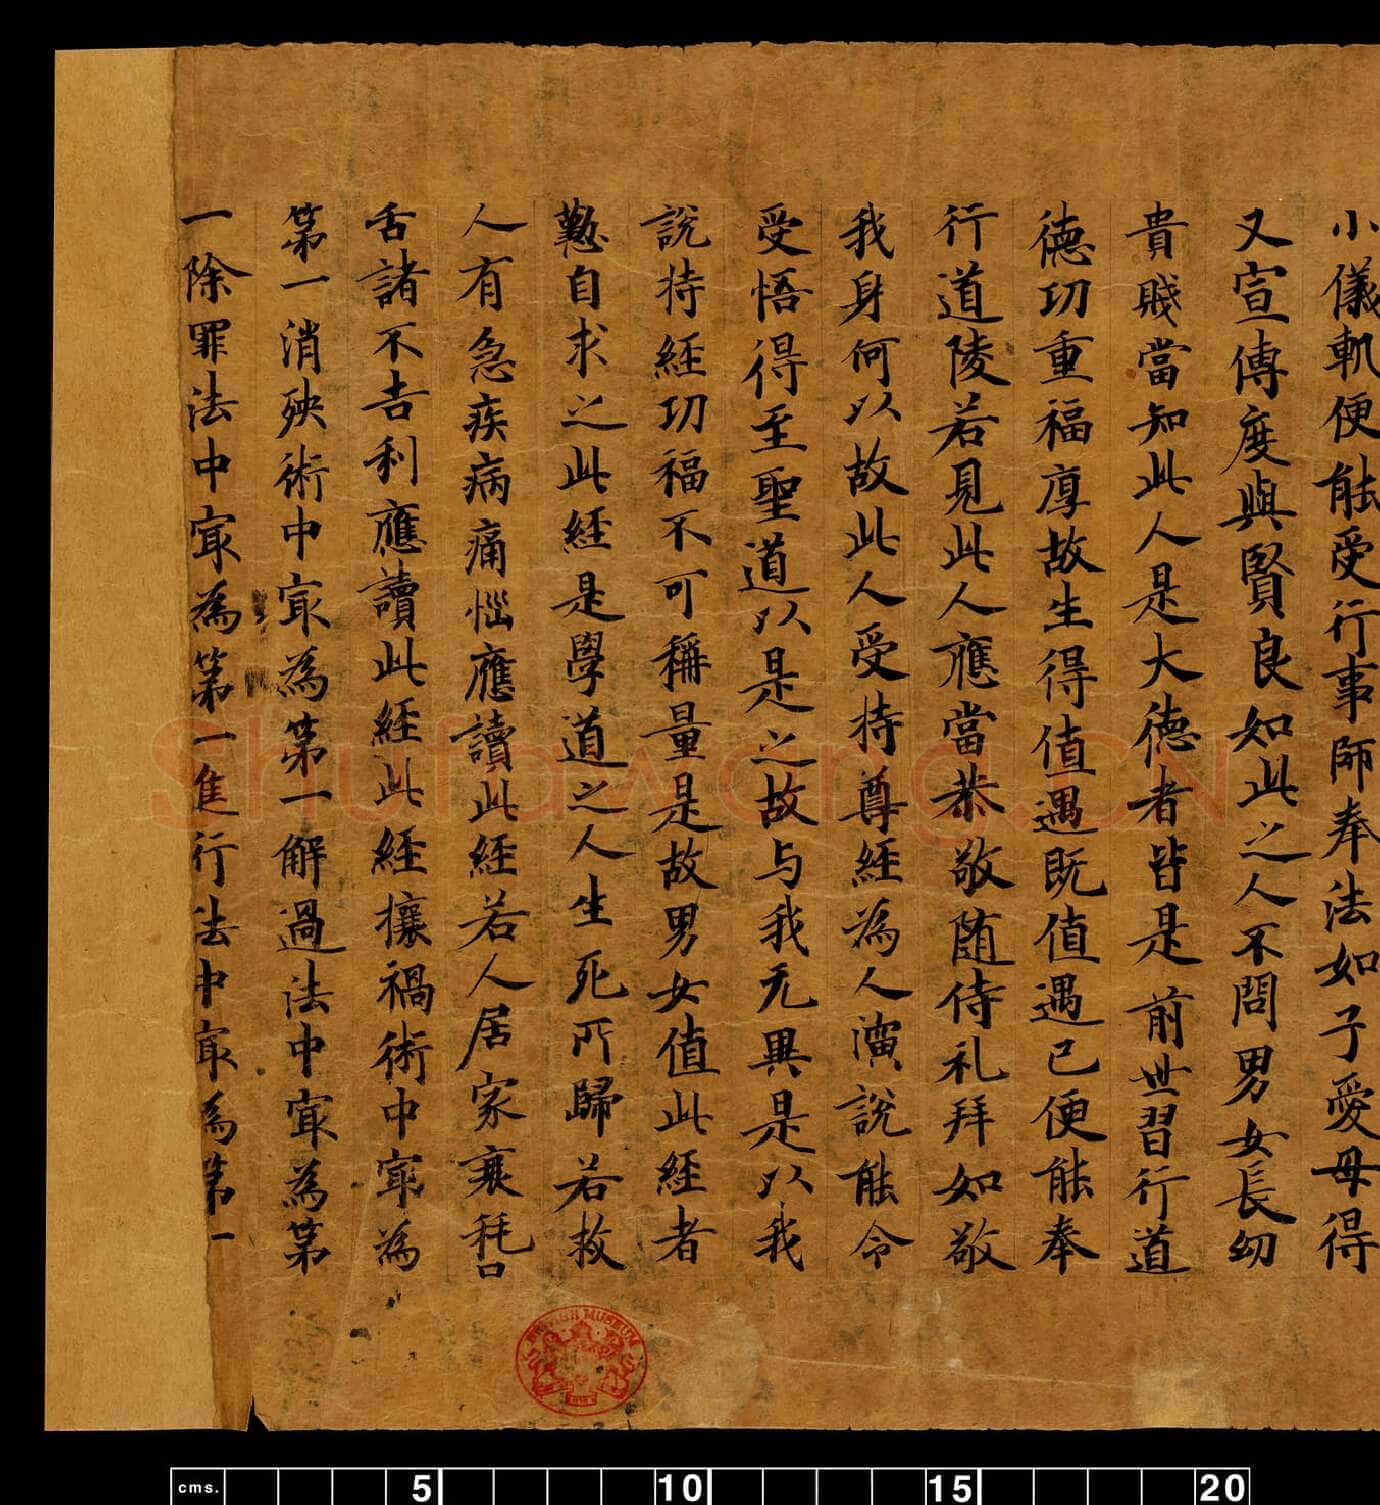 小儀軌便能受行事師奉法如子愛母得
又宣傳度與賢良如此之人不問男女長幼
貴賤當知此人是大德者皆是前世習行道
德功重福厚故生得值遇既值遇已便能奉
行道陵若見此人應當恭敬隨侍礼拜如敬
我身何以故此人受持尊經為人演說能令
受悟得至聖道以是之故与我无異是以我
說持經功福不可稱量是故男女值此經者
懃自求之此經是學道之人生死所歸若救
人有急疾病痛惱應讀此經若人居家衰耗口
舌諸不吉利應讀此經此經攘禍術中㝡為
第一消殃術中㝡為第一解過法中㝡為第
一除罪法中㝡為第一進行法中㝡為第一
shufawang.cn
BRITISH MUSEUM
cms. 5 10 15 20